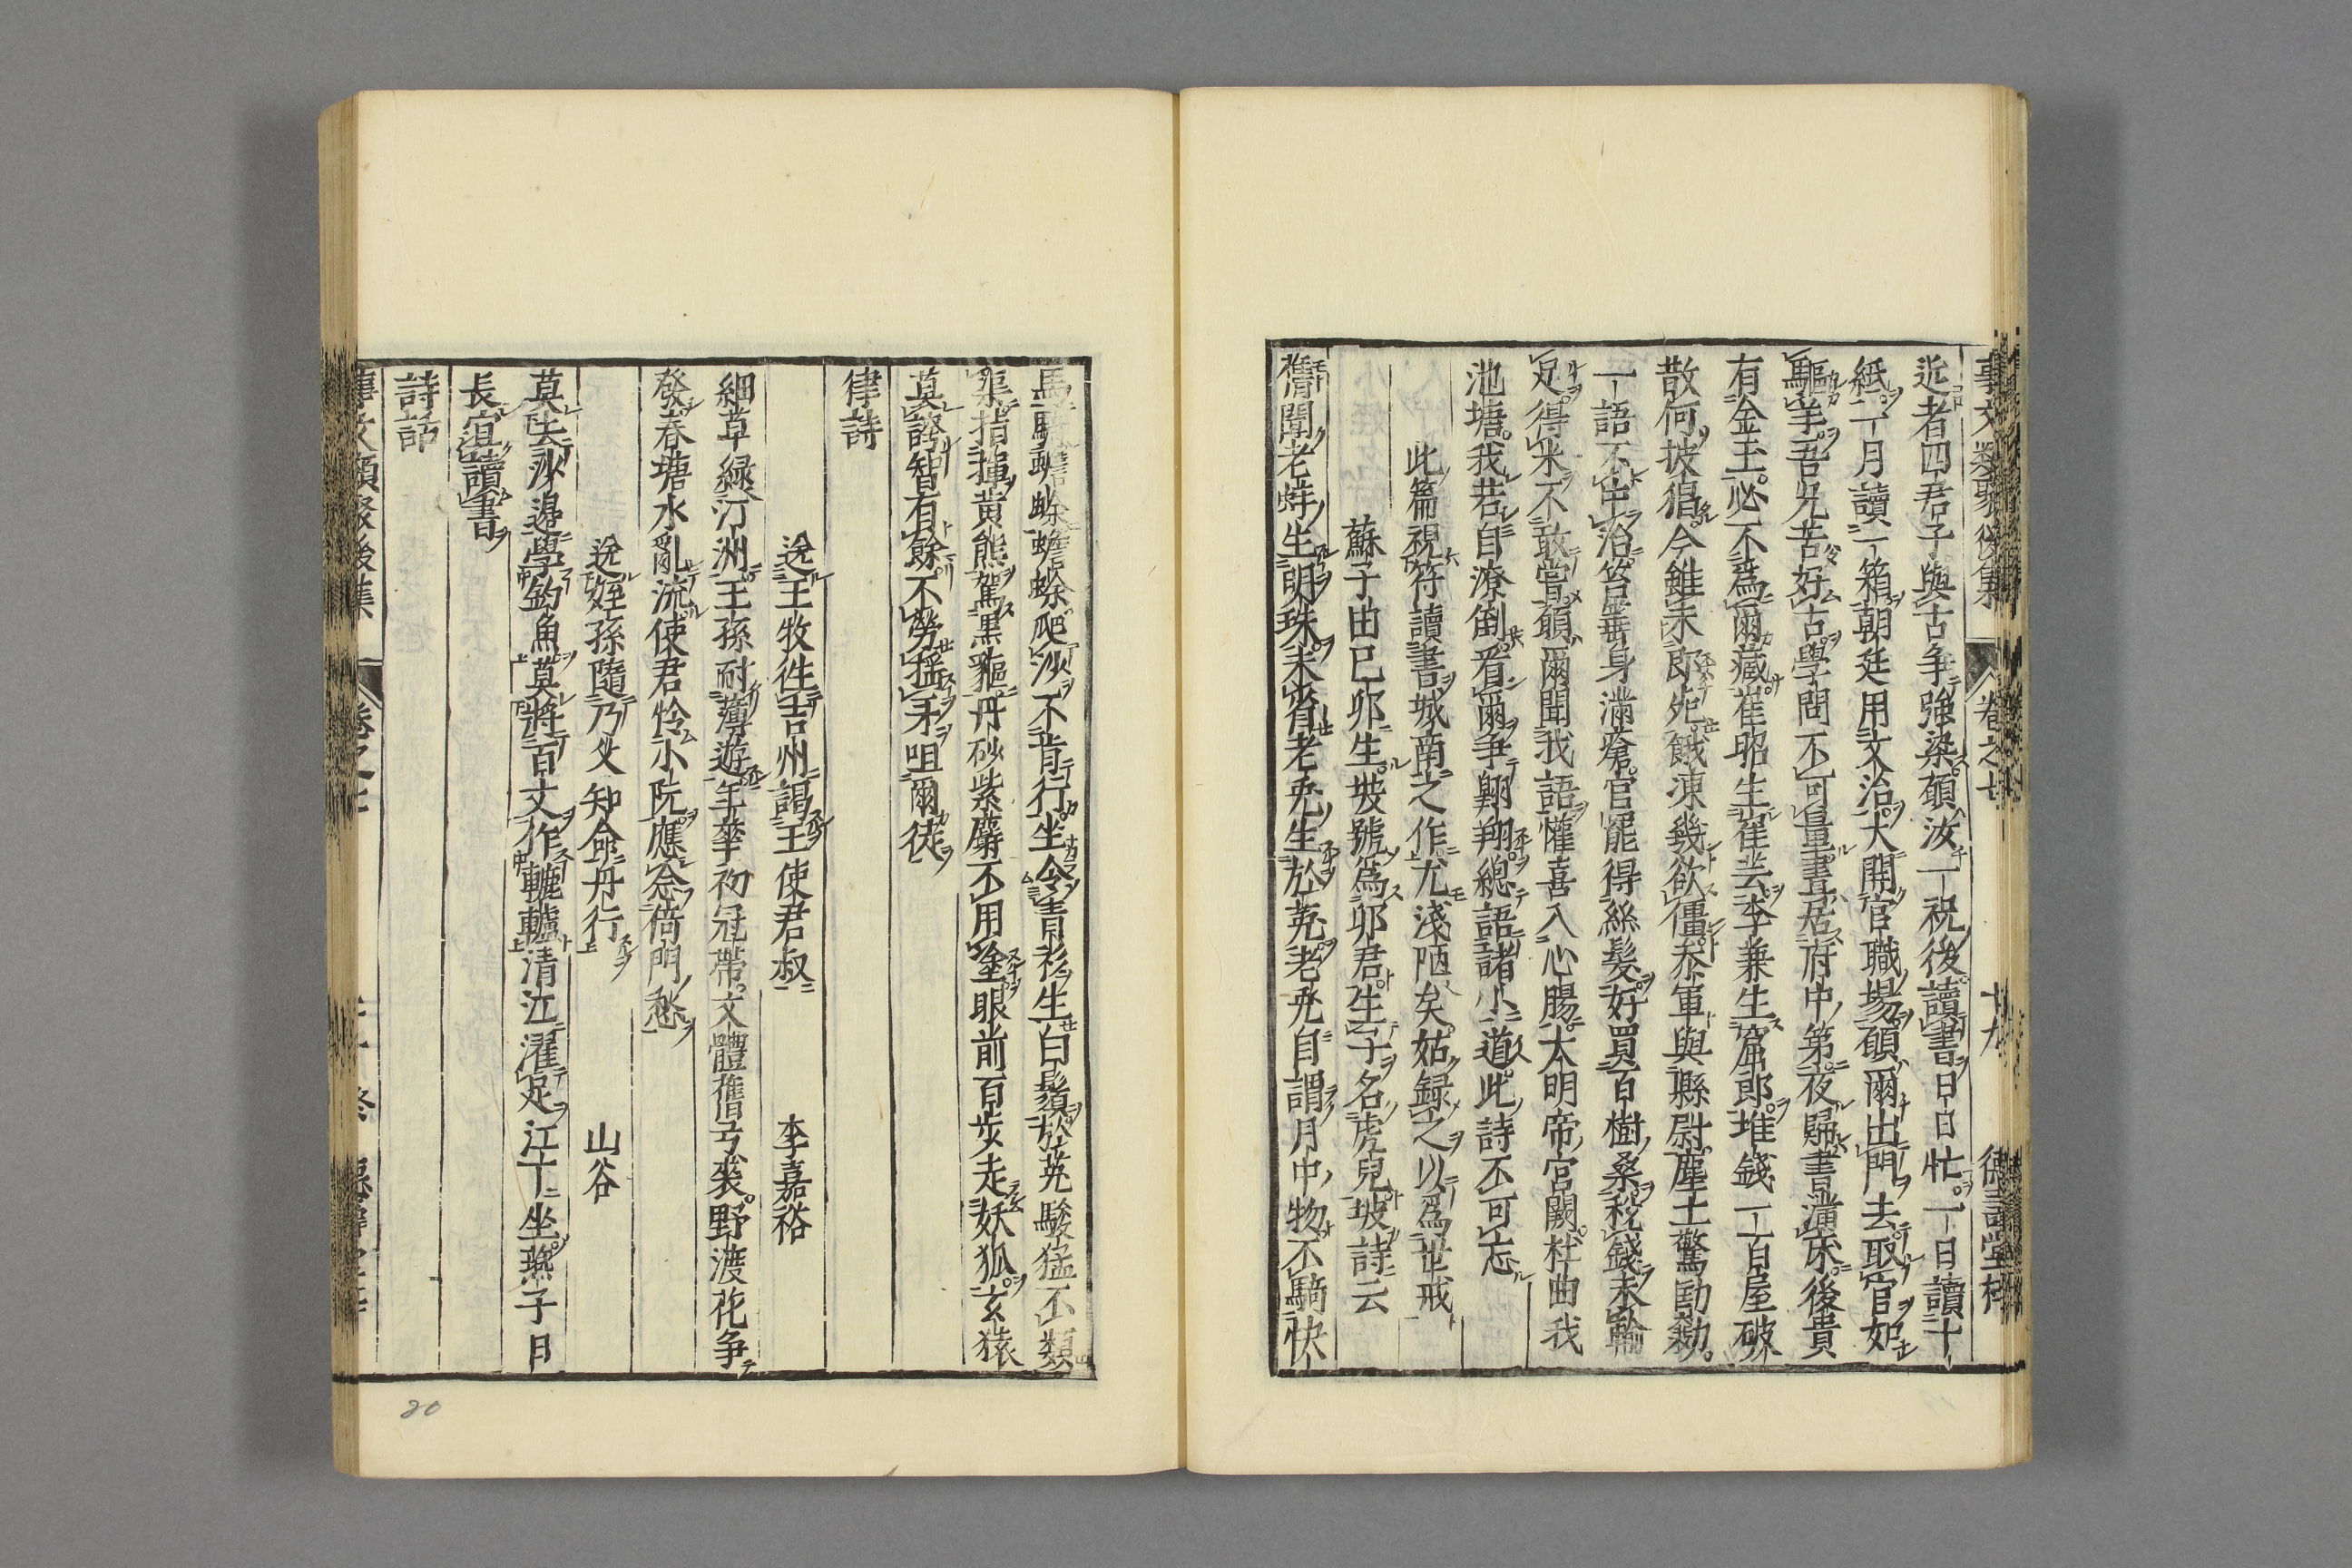 事文類聚後集 卷之七 十九 德壽堂梓
近者四君子與古争強梁願汝一祝後讀書日日忙一日讀十
紙一月讀一箱朝廷用文治大開官職場願爾出門去取官如
驅羊吾兄苦好古學問不可量晝居府中第夜歸書滿床後貴
有金玉必不爲爾藏崔昭生崔芸李兼生窟郎堆錢一百屋破
散何披猖今雖未即死餓凍幾欲僵叅軍與縣尉塵土驚劻勷
一語不中治笞箠身滿瘡官罷得絲髮好買百樹桑稅錢未輸
足得米不敢嘗願爾聞我語懽喜入心腸大明帝宮闕杜曲我
池塘我若自潦倒看爾争翺翔緫語諸小道此詩不可忘
此篇視符讀書城南之作尤淺陋矣姑録之以爲世戒
蘇子由已卯生坡號爲卯君生子名虎兒坡詩云
舊聞老蚌生明珠未省老兎生於菟老兎自謂月中物不騎快
馬騎蟾蜍蟾蜍爬沙不肯行坐令青衫生白鬚於菟駿猛不類
渠指揮黄熊駕黒貙丹砂紫麝不用塗眼前百步走妖狐玄猿
莫誇智有餘不勞搖牙咀爾徒
律詩
送王牧徃吉州謁王使君叔 李嘉裕
細草緑汀洲王孫耐薄遊年華初冠帶文體舊弓裘野渡花争
發春塘水亂流使君怜小阮應念倚門愁
送姪孫隨乃父知命舟行 山谷
莫去沙邊學釣魚莫將百丈作轆轤清江濯足江下坐燕子日
長宜讀書
詩話
事文類聚後集 卷之七
20